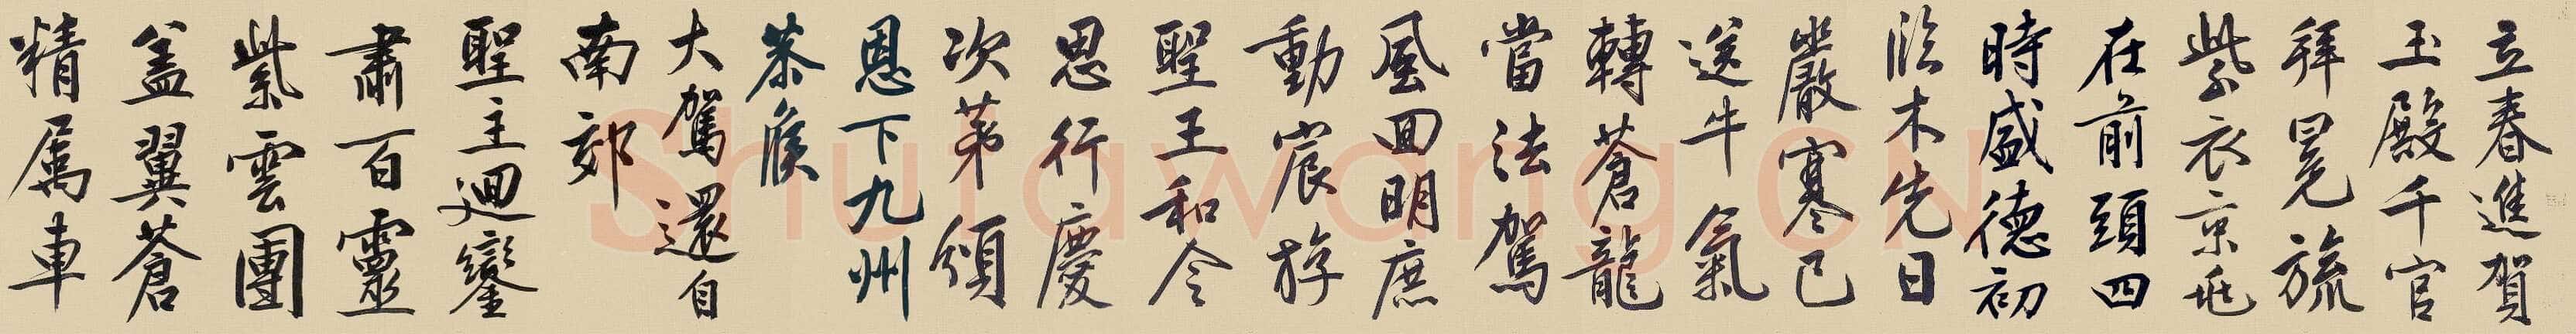 立春進賀
玉殿千官
拜冕旒
紫衣京兆
在前頭四
時盛德初
臨木先日
嚴寒已
送牛氣
轉蒼龍
當法駕
風回明庶
動宸斿
聖王和令
思行慶
次第頒
恩下九州
恭候
大駕還自
南郊
聖主迴鑾
肅百靈
紫雲團
盖翼蒼
精属車
Shufawang CN